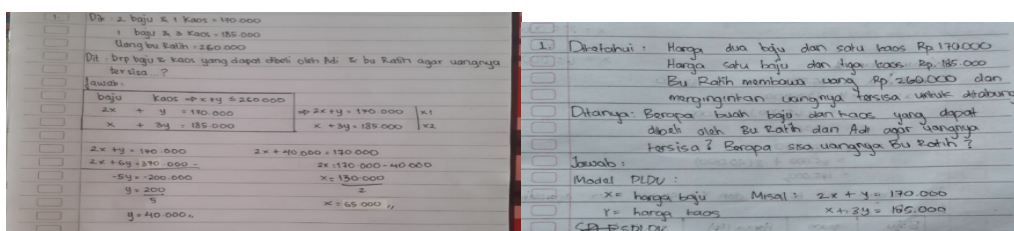 1. Dik : 2 baju & 1 kaos = 170.000
1 baju & 3 kaos = 185.000
Uang bu Ratih = 260.000
Dit : brp baju & kaos yang dapat dibeli oleh Adi & bu Ratih agar uangnya
tersisa ...?
Jawab :
baju kaos => x+y ≤ 260.000
2x + y = 170.000
x + 3y = 185.000
=> 2x+y = 170.000 | x1
x + 3y = 185.000 | x2
2x + y = 170.000
2x + 6y = 370.000 -
-5y = -200.000
y = 200
5
y = 40.000 ,,
2x + 40.000 = 170.000
2x = 170.000 - 40.000
x = 130.000
2
x = 65.000 ,,
1. Diketahui : Harga dua baju dan satu kaos Rp 170.000
Harga satu baju dan tiga kaos Rp. 185.000
Bu Ratih membawa uang Rp. 260.000 dan
menginginkan uangnya tersisa untuk ditabung
Ditanya : Berapa buah baju dan kaos yang dapat
dibeli oleh Bu Ratih dan Adi agar uangnya
tersisa ? Berapa sisa uangnya Bu Ratih ?
Jawab :
Model PLDV :
x = harga baju Misal : 2x + y = 170.000
Y = harga kaos x + 3y = 185.000